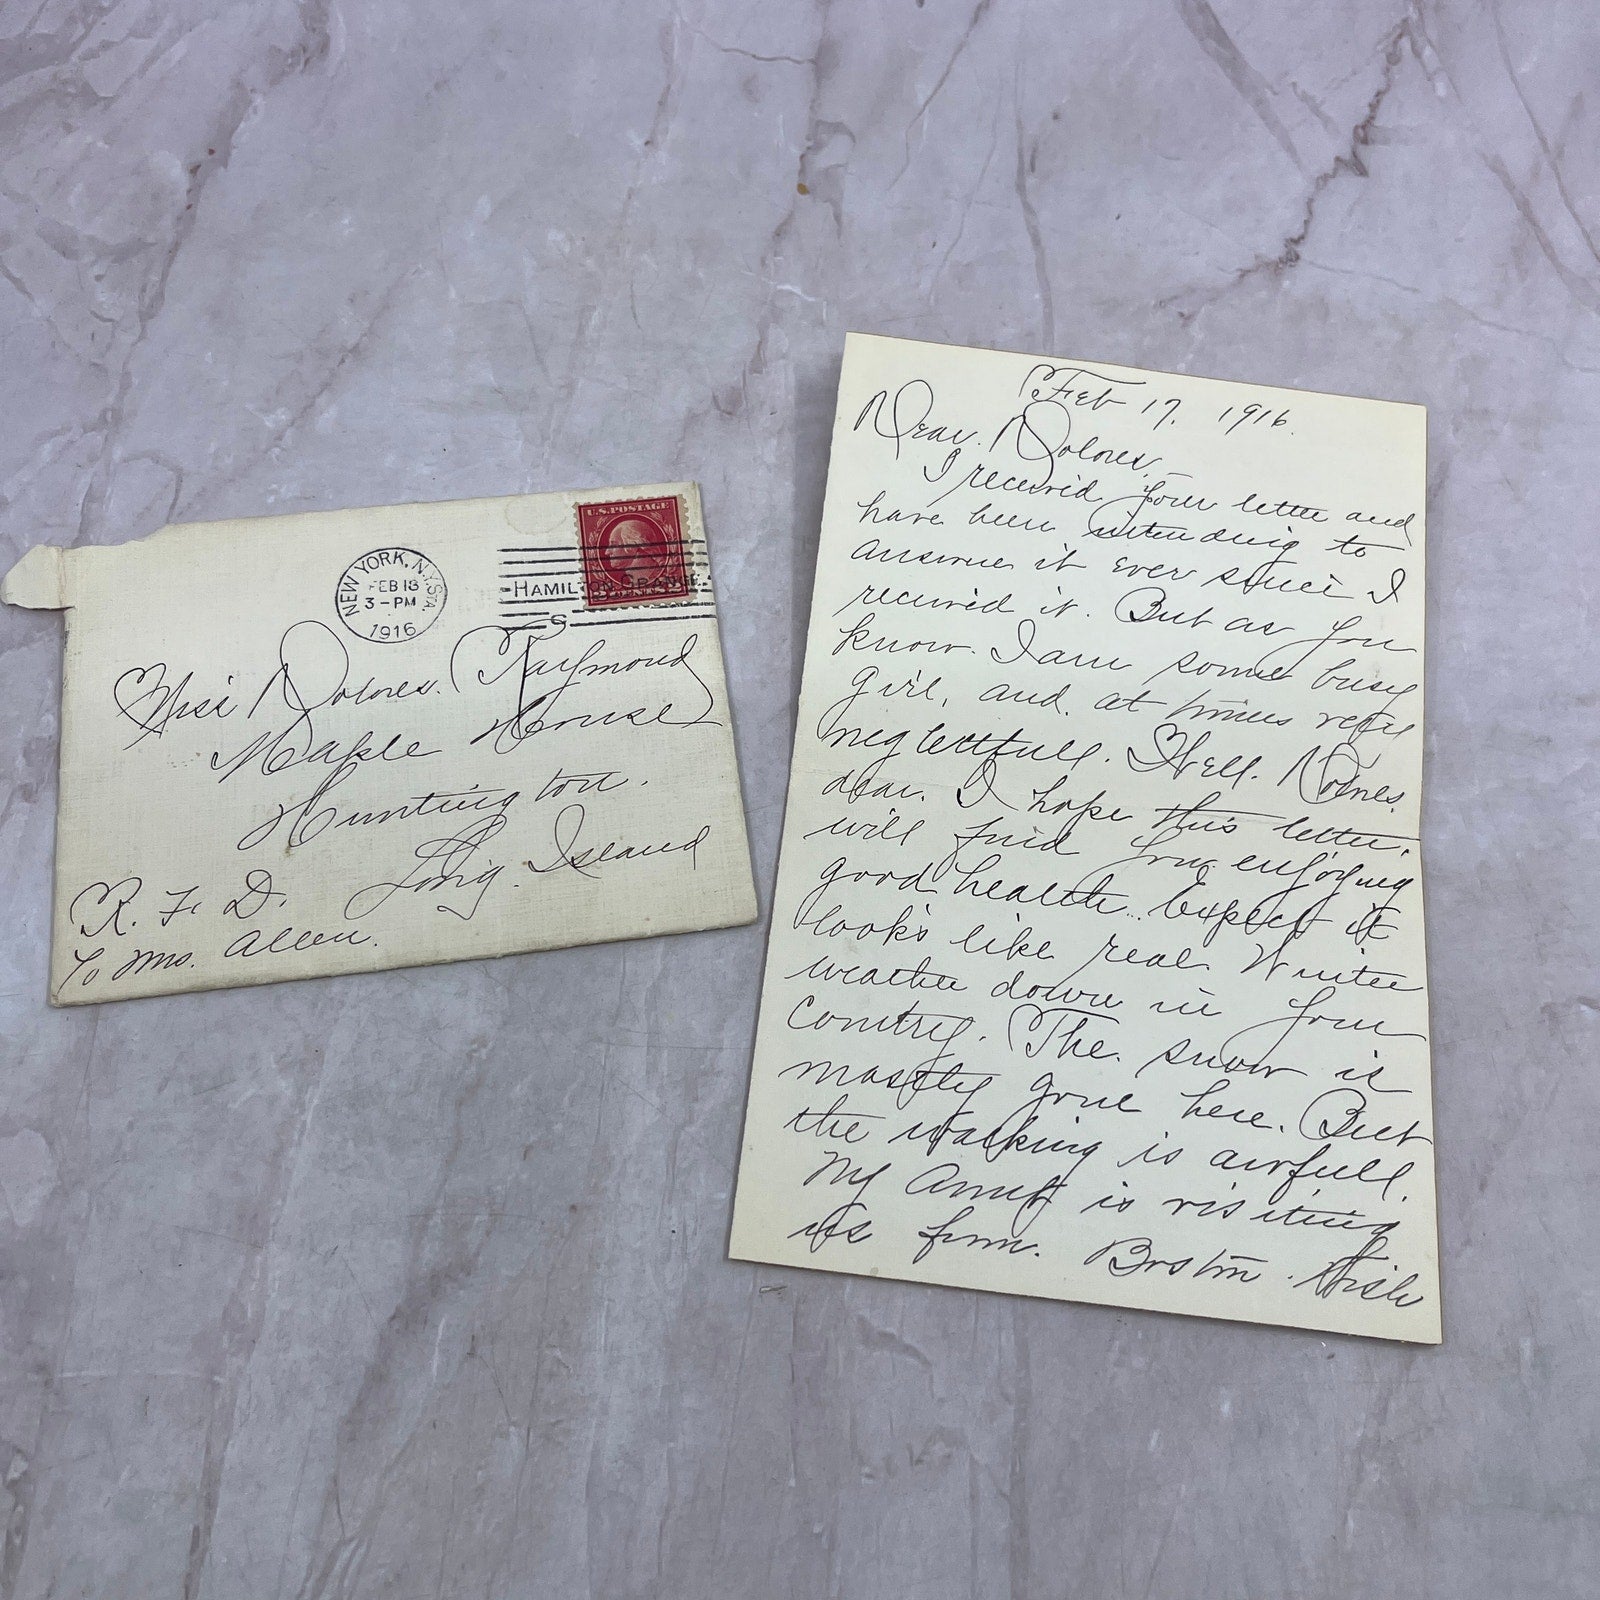 U.S. POSTAGE
NEW YORK, N.Y. STA.
FEB 18
3-PM
1916
HAMILTON GRANGE
Miss Dolores Raymond
Maple House
Huntington.
Long Island
R. F. D.
c/o Mrs. Allen.
Feb 17, 1916.
Dear Dolores,
I received your letter and
have been intending to
answer it ever since I
received it. But as you
know. I am some busy
girl, and at times very
neglectfull. Well. Dolores
dear. I hope this letter.
will find you enjoying
good health. Expect it
looks like real Winter
weather down in your
Country. The snow is
mostly gone here. But
the walking is awfull.
My Aunt is visiting
us from Boston. Wish